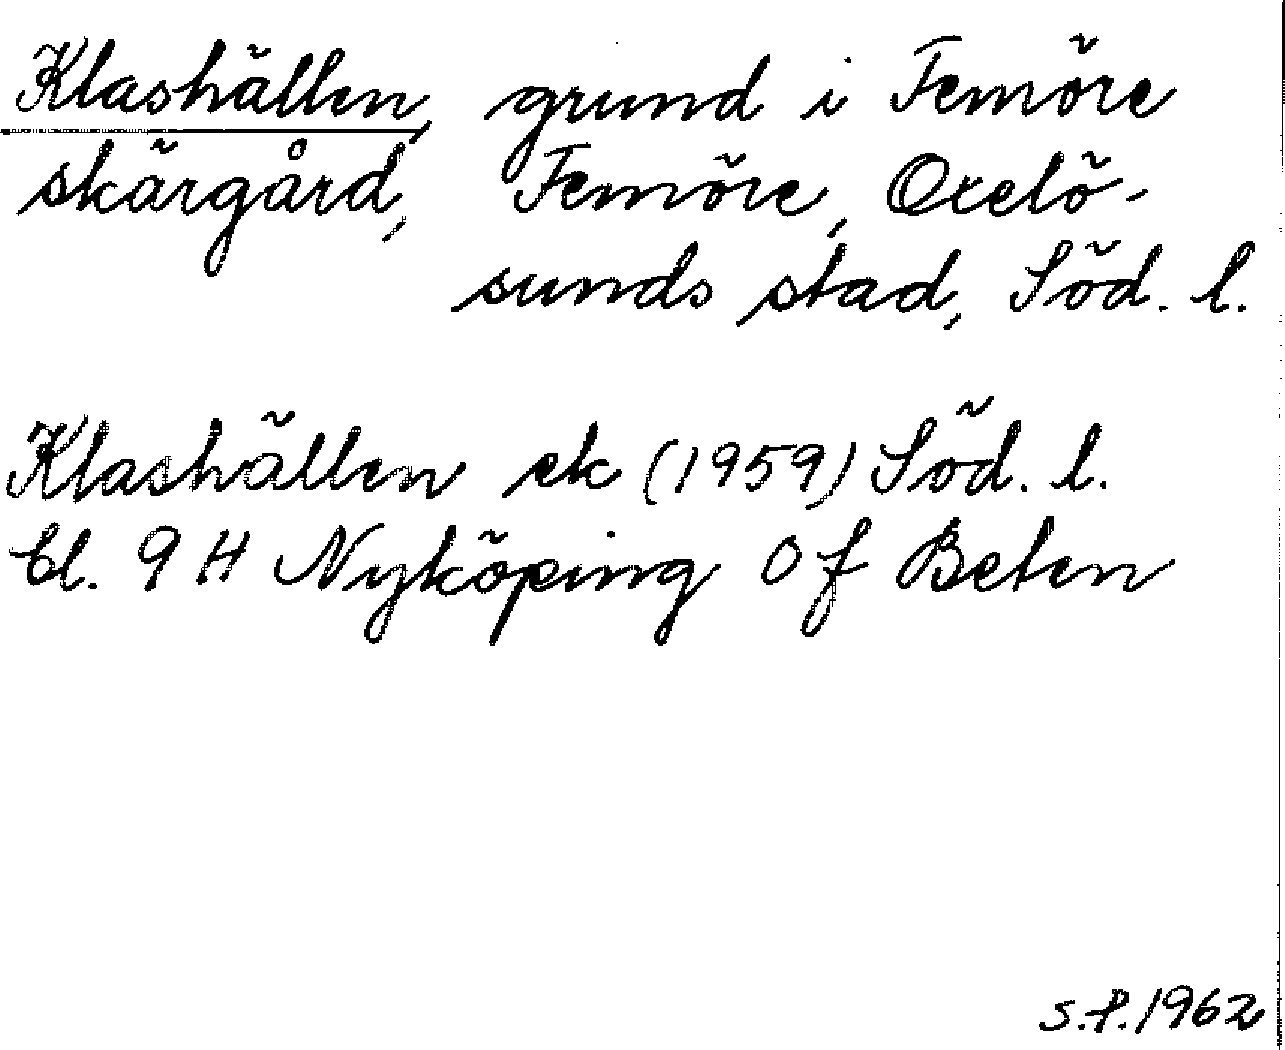 Klashällen, grund i Femöre
skärgård, Femöre, Oxelö-
sunds stad, Söd. l.
Klashällen ek (1959) Söd. l.
bl. 9 H Nyköping 0 f Beten
S.P. 1962